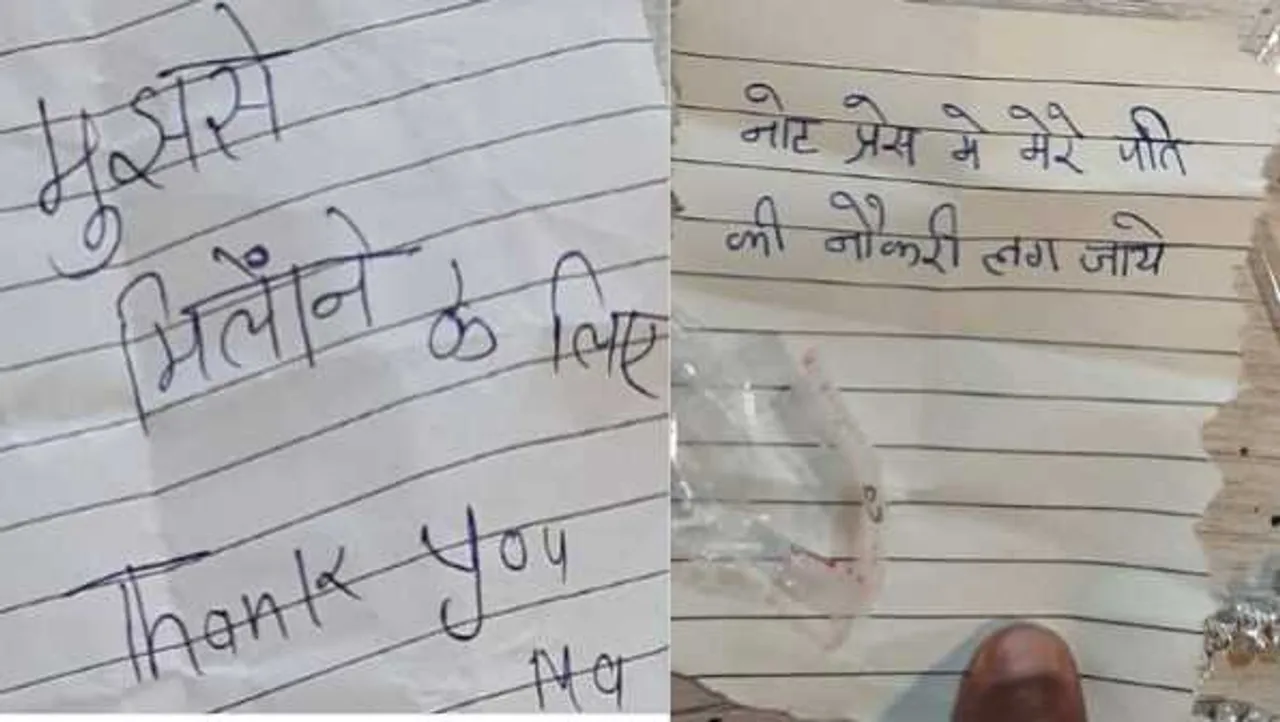 मुझसे
मिलाने के लिए
Thank you
Na
नोट प्रेस मे मेरे पति
की नौकरी लग जाये